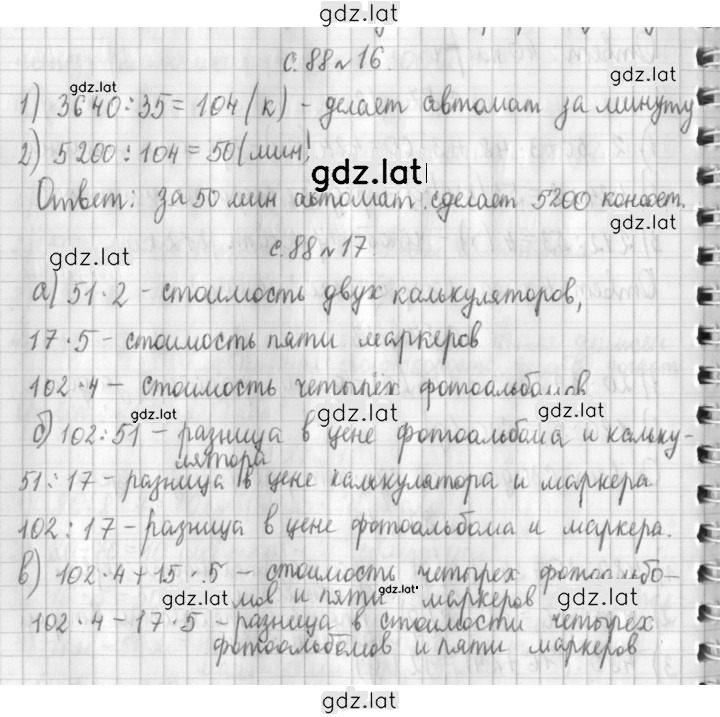 gdz.lat
с. 88 № 16.
gdz.lat
gdz.lat
1) 3640 : 35 = 104 (к) - делает автомат за минуту
2) 5200 : 104 = 50 (мин)
gdz.lat
Ответ: за 50 мин автомат сделает 5200 конфет.
gdz.lat
с. 88 № 17.
gdz.lat
а) 51 · 2 - стоимость двух калькуляторов,
17 · 5 - стоимость пяти маркеров
102 · 4 - стоимость четырёх фотоальбомов
gdz.lat gdz.lat gdz.lat
б) 102 : 51 - разница в цене фотоальбома и кальку-
лятора
51 : 17 - разница в цене калькулятора и маркера
102 : 17 - разница в цене фотоальбома и маркера.
в) 102 · 4 + 15 · 5 - стоимость четырех фотоальбо-
gdz.lat мов и пяти gdz.lat маркеров gdz.lat
102 · 4 - 17 · 5 - разница в стоимости четырёх
фотоальбомов и пяти маркеров
gdz.lat